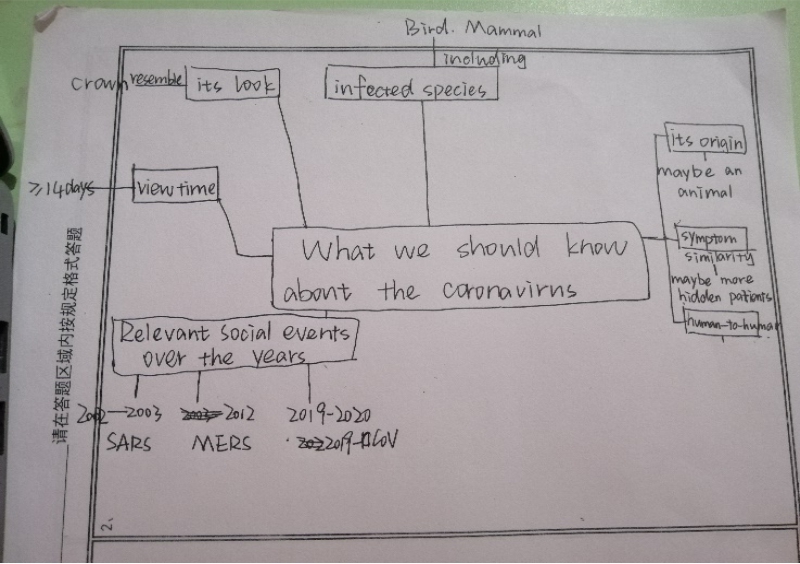 Bird. Mammal
including
crown resemble its look
infected species
its origin
maybe an
animal
≥14days
view time
symptom
similarity
maybe more
hidden patients
human-to-human
What we should know
about the coronavirus
Relevant social events
over the years
2002-2003
SARS
2012
MERS
2019-2020
2019-nCoV
请在答题区域内按规定格式答题
2.